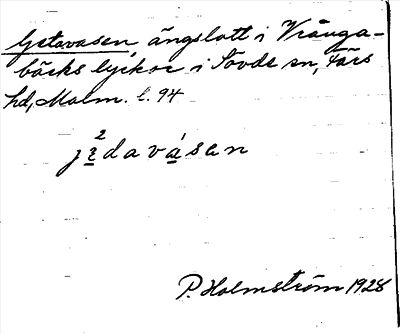 Getavasen, ängslott i Vrånga-
bäcks lyckor i Sövde sn, Färs
hd, Malm. l. 94
jɛ²davásen
P. Holmström 1928